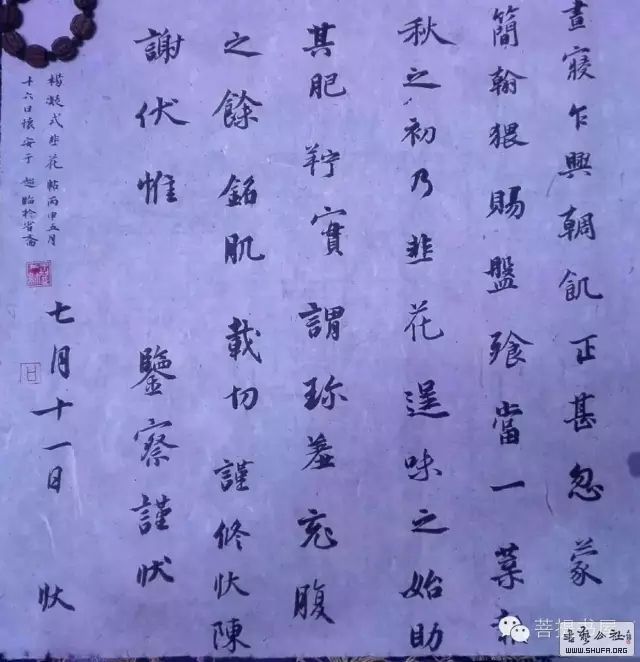 晝寢乍興輖飢正甚忽蒙
簡翰猥賜盤飧當一葉報
秋之初乃韭花逞味之始助
其肥羜實謂珍羞充腹
之餘銘肌載切謹修狀陳
謝伏惟 鑒察謹狀
七月十一日 狀
楊凝式韭花帖丙申五月
十六日懷安于超臨於省齋
菩提书屋
書藝公社
WWW.SHUFA.ORG